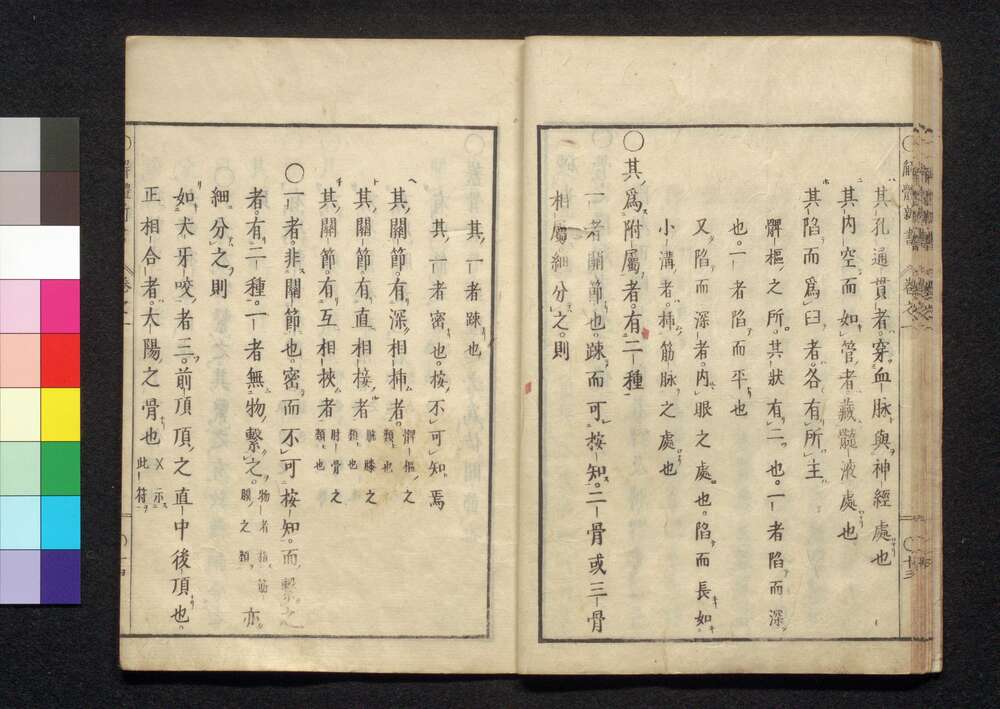 其孔通貫者穿血脉與神經處也
其内空而如管者藏髓液處也
其陷而爲臼者各有所主
髀樞之所其狀有二也一者陷而深
也一者陷而平也
又陷而深者内眼之處也陷而長如
小溝者挿筋脉之處也
〇其爲附屬者有二種
一者關節也踈而可按知二骨或三骨
相屬細分之則
其一者踈也
其一者密也按不可知焉
其關節有深相挿者髀樞之類也
其關節有直相接者膝之類也
其關節有互相挾者肘骨之類也
〇一者非關節也密而不可按知而繫之
者有二種一者無物繫之物者筋膜之類亦
細分之則
如犬牙咬者三前頂頂之直中後頂也
正相合者太陽之骨也 示此符